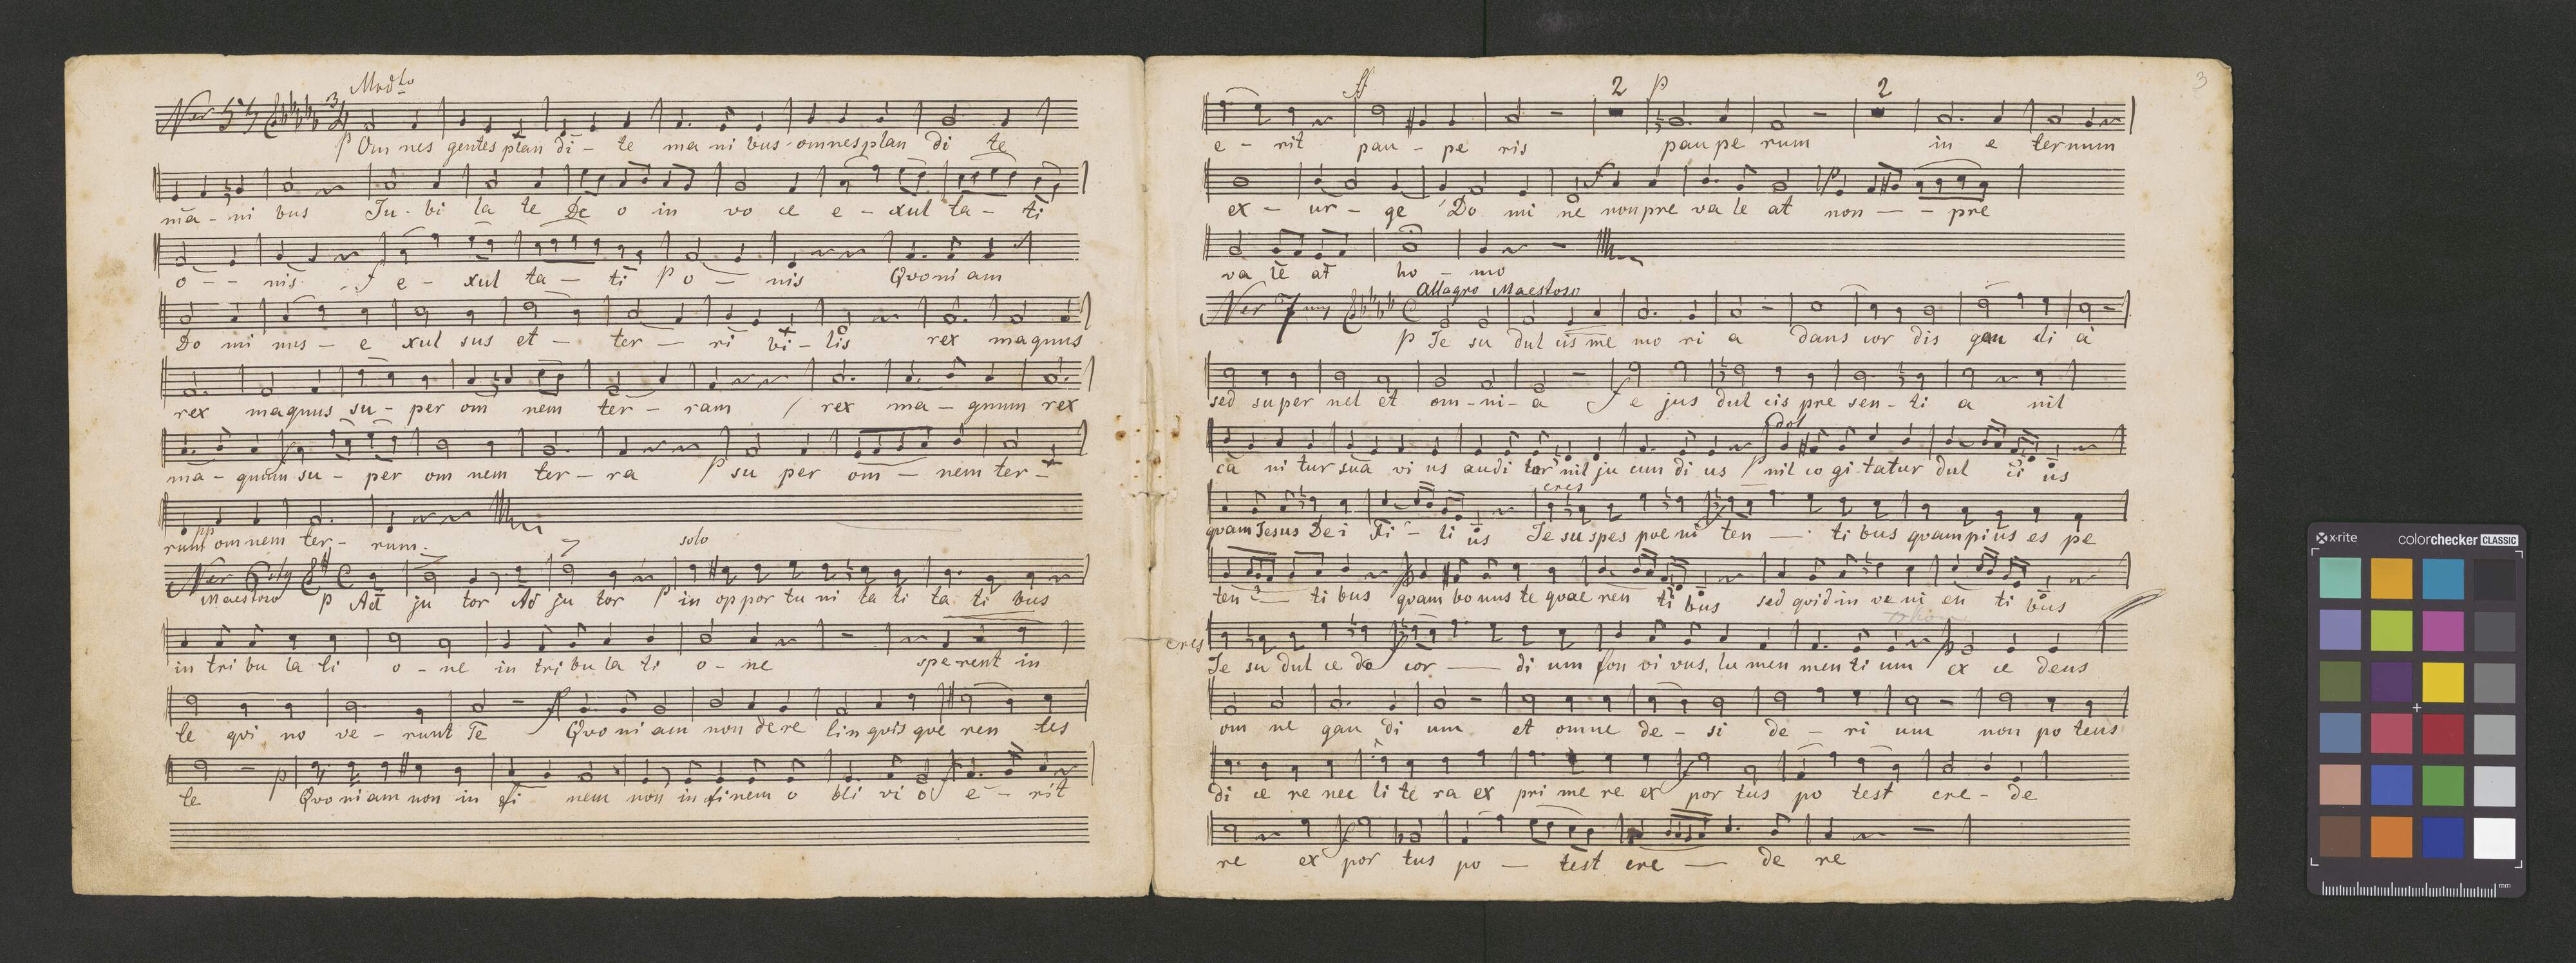 Modto
Nro 5ty 3/4
p Om nes gentes plau di - te ma ni bus omnes plau di te
ma - ni bus Ju - bi la te De o in vo ce e - xul ta - ti
o - - nis f e - xul ta - ti p o - nis Quoniam
Do mi nus - e xul sus et - ter - ri bi - lis rex magnus
rex magnus su - per om nem ter - ram rex ma - gnum rex
ma - gnum su - per om nem ter - ra p su per om - nem ter -
pp
rum om nem ter - rum.
solo
Nro 6ty C
Maestoso p Ad ju tor Ad ju tor p in op por tu ni ta ti ta ti bus
in tri bu la ti o - ne in tri bu la ti o - ne sperent in
te qui no ve - runt Te f Quo ni am non de re linquis que ren tes
p
te Quo ni am non in fi nem non in finem o bli vi o f e - rit
3
ff 2 p 2
e - rit pau - pe ris pau pe rum in e ternum
f p
ex - ur - ge Do mi ne non pre va le at non - - pre
va te at ho - mo
Allagro Maestoso
Nro 7my C
p Je su dul cis me mo ri a dans cor dis gau di a
sed super nel et om - ni - a f e jus dul cis pre sen - ti a nil
dol
ca ni tur sua vi us audi tur nil ju cun di us p nil co gi tatur dul ci us
cres
quam Jesus De i Fi - li us Je su spes poe ni ten - ti bus quam pi us es pe
ten - ti bus quam bo nus te quae ren ti bus sed quid in ve ni en ti bus
cres
Je su dul ce do cor - di um fon vi vus, lu men men ti um p ex ce deus
om ne gau di um et omne de - si de - ri um non po teus
di ce re nec li te ra ex pri me re ex por tus po test cre - de
re ex por tus po - test cre - de re
x-rite colorchecker CLASSIC
mm